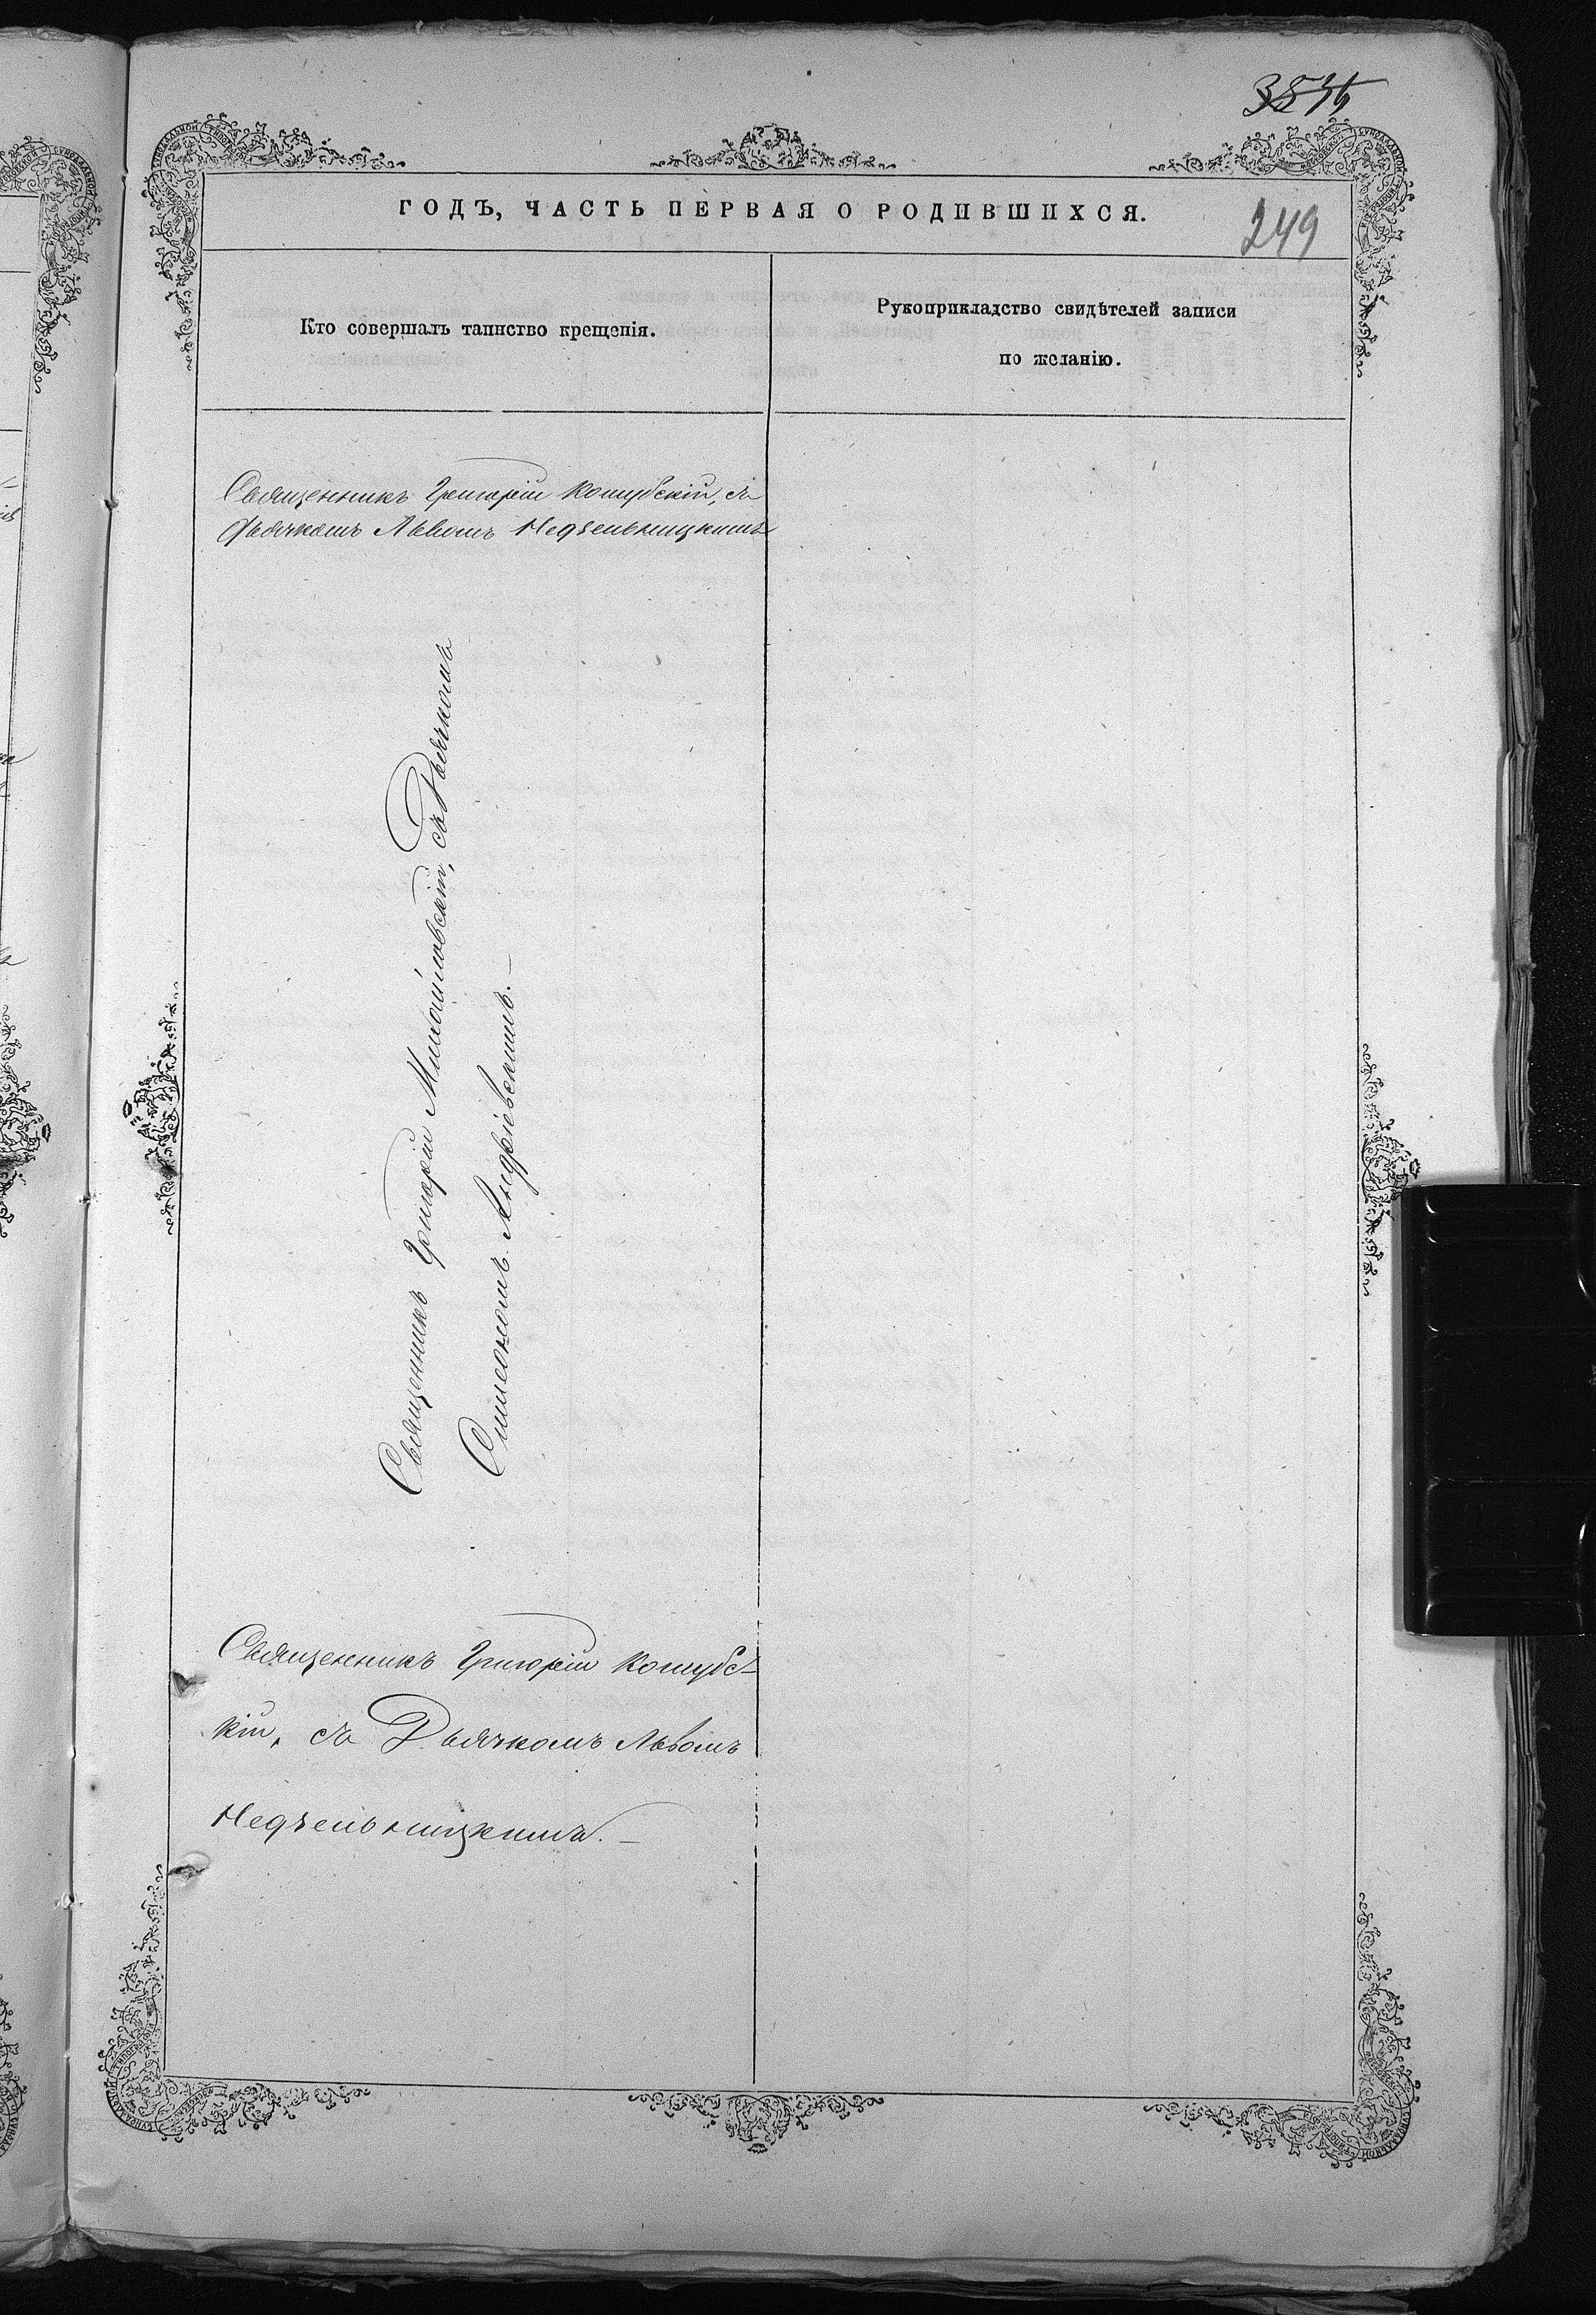 249
ГОДЪ, ЧАСТЬ ПЕРВАЯ О РОДИВШИХСЯ.
Кто совершалъ таинство крещенія.
Рукоприкладство свидѣтелей записи
по желанію.
Священникъ Григорій Кошубскій, съ
Дьячкомъ Львомъ Недзельницкимъ
Священникъ Григорій съ Дьячкомъ
Симеономъ Андріевскимъ.—
Священникъ Григорій Кошубс-
кій, съ Дьячкомъ Львомъ
Недзельницкимъ.—